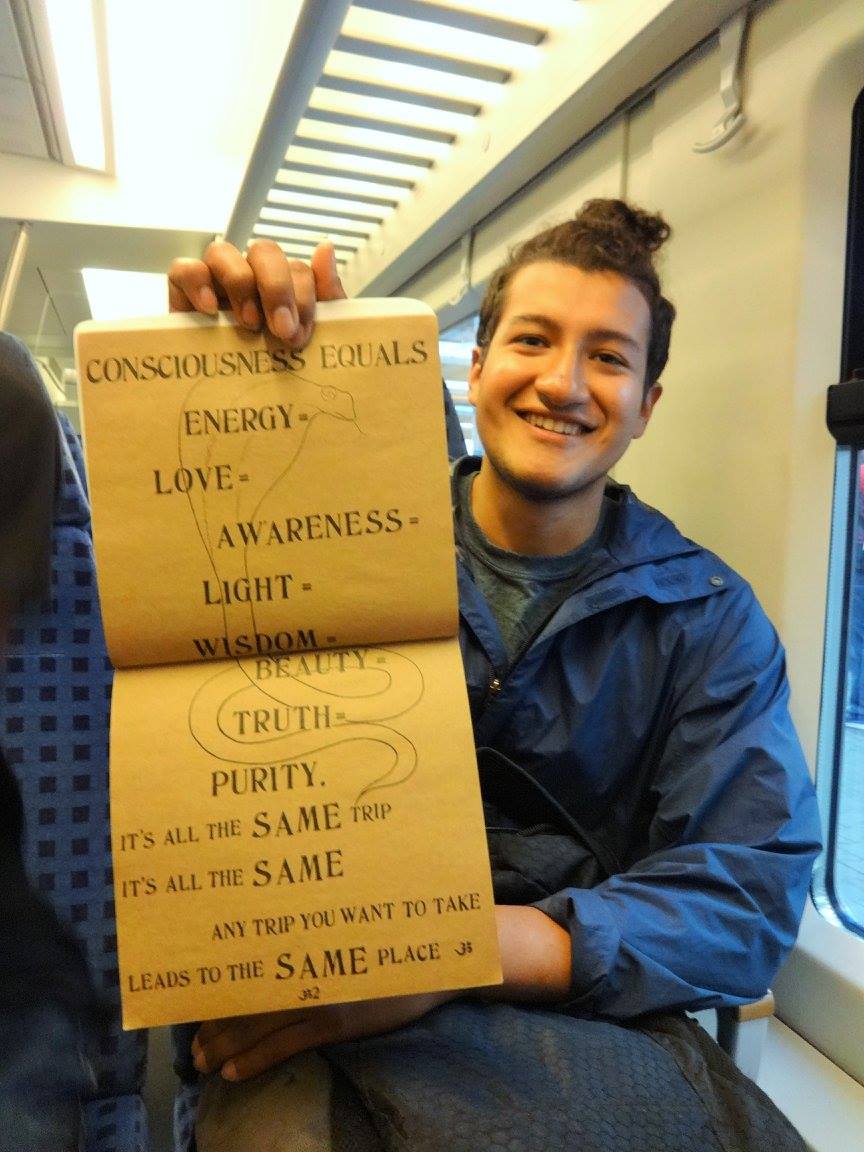 CONSCIOUSNESS EQUALS
ENERGY=
LOVE=
AWARENESS=
LIGHT=
WISDOM=
BEAUTY=
TRUTH=
PURITY.
IT'S ALL THE SAME TRIP
IT'S ALL THE SAME
ANY TRIP YOU WANT TO TAKE
LEADS TO THE SAME PLACE ॐ